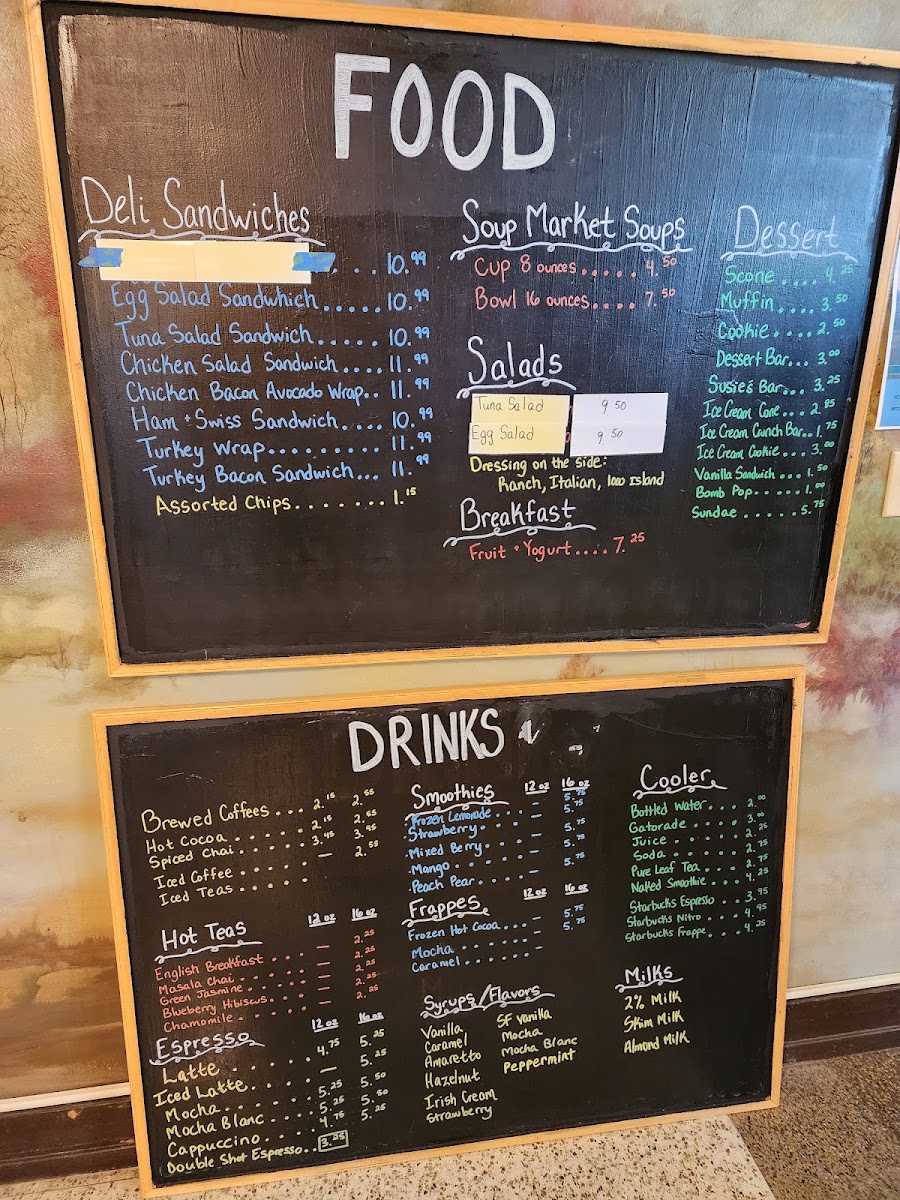 FOOD
Deli Sandwiches
.... 10.99
Egg Salad Sandwhich ..... 10.99
Tuna Salad Sandwich ..... 10.99
Chicken Salad Sandwich .... 11.99
Chicken Bacon Avocado Wrap.. 11.99
Ham + Swiss Sandwich .... 10.99
Turkey Wrap......... 11.99
Turkey Bacon Sandwich... 11.99
Assorted Chips ....... 1.15
Soup Market Soups
Cup 8 ounces ..... 4.50
Bowl 16 ounces..... 7.50
Salads
Tuna Salad 9 50
Egg Salad 9 50
Dressing on the side:
Ranch, Italian, 1000 Island
Breakfast
Fruit + Yogurt .... 7.25
Dessert
Scone .... 4.25
Muffin .... 3.50
Cookie .... 2.50
Dessert Bar... 3.00
Susie's Bar... 3.25
Ice Cream Cone ... 2.85
Ice Cream Crunch Bar.. 1.75
Ice Cream Cookie ... 3.00
Vanilla Sandwich ... 1.50
Bomb Pop ..... 1.00
Sundae ...... 5.75
DRINKS
Brewed Coffees ... 2.15 2.55
Hot Cocoa ....... 2.15 2.65
Spiced Chai ...... 3.45 3.95
Iced Coffee ...... — 2.55
Iced Teas ......
Hot Teas 12 oz 16 oz
English Breakfast .... — 2.25
Masala Chai ...... — 2.25
Green Jasmine .... — 2.25
Blueberry Hibiscus.... — 2.25
Chamomile ...... — 2.25
Espresso 12 oz 16 oz
Latte ....... 4.75 5.25
Iced Latte...... — 5.25
Mocha ....... 5.25 5.50
Mocha Blanc .... 5.25 5.50
Cappuccino .... 4.75 5.25
Double Shot Espresso.. 3.25
Smoothies 12 oz 16 oz
Frozen Lemonade .... — 5.75
Strawberry ..... — 5.75
Mixed Berry ..... — 5.75
Mango ....... —
Peach Pear ..... — 5.75
Frappes 12 oz 16 oz
Frozen Hot Cocoa.... — 5.75
Mocha ....... — 5.75
Caramel ...... —
Syrups/Flavors
Vanilla
Caramel
Amaretto
Hazelnut
Irish Cream
Strawberry
SF Vanilla
Mocha
Mocha Blanc
Peppermint
Cooler
Bottled Water ... 2.00
Gatorade .... 3.00
Juice ...... 2.25
Soda ....... 2.75
Pure Leaf Tea .. 2.75
Naked Smoothie ... 4.25
Starbucks Espresso .. 3.95
Starbucks Nitro ... 4.95
Starbucks Frappe ... 4.25
Milks
2% Milk
Skim Milk
Almond Milk